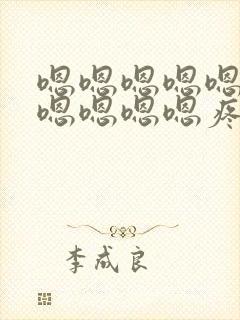 嗯嗯嗯嗯嗯
嗯嗯嗯嗯疼
李成良